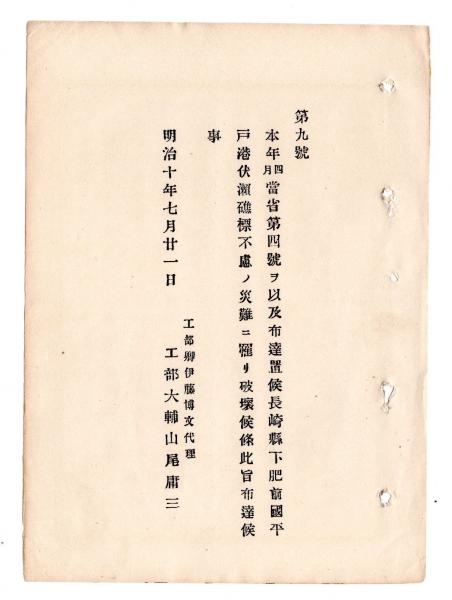 第九號
本年四月當省第四號ヲ以及布達置候長崎縣下肥前國平
戸港伏瀬礁標不慮ノ災難ニ罹リ破壞候條此旨布達候
事
明治十年七月廿一日
工部卿伊藤博文代理
工部大輔山尾庸三